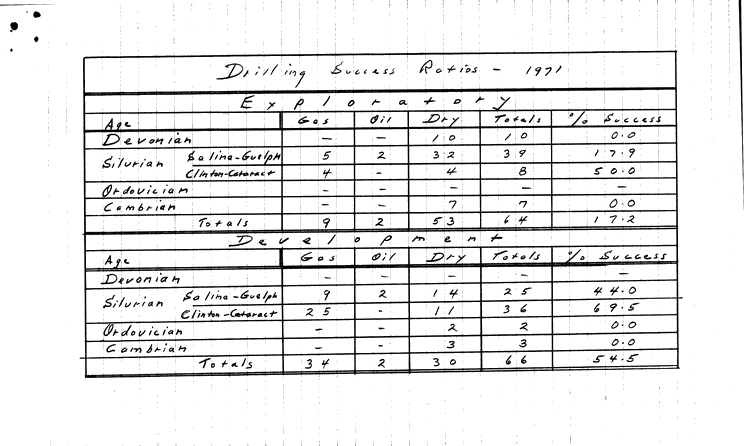 Drilling Success Ratios - 1971
Exploratory
Age Gas Oil Dry Totals % Success
Devonian — — 10 10 0.0
Silurian Salina-Guelph 5 2 32 39 17.9
Clinton-Cataract 4 - 4 8 50.0
Ordovician — — — — —
Cambrian — — 7 7 0.0
Totals 9 2 53 64 17.2
Development
Age Gas Oil Dry Totals % Success
Devonian — — — — —
Silurian Salina-Guelph 9 2 14 25 44.0
Clinton-Cataract 25 - 11 36 69.5
Ordovician — — 2 2 0.0
Cambrian — — 3 3 0.0
Totals 34 2 30 66 54.5